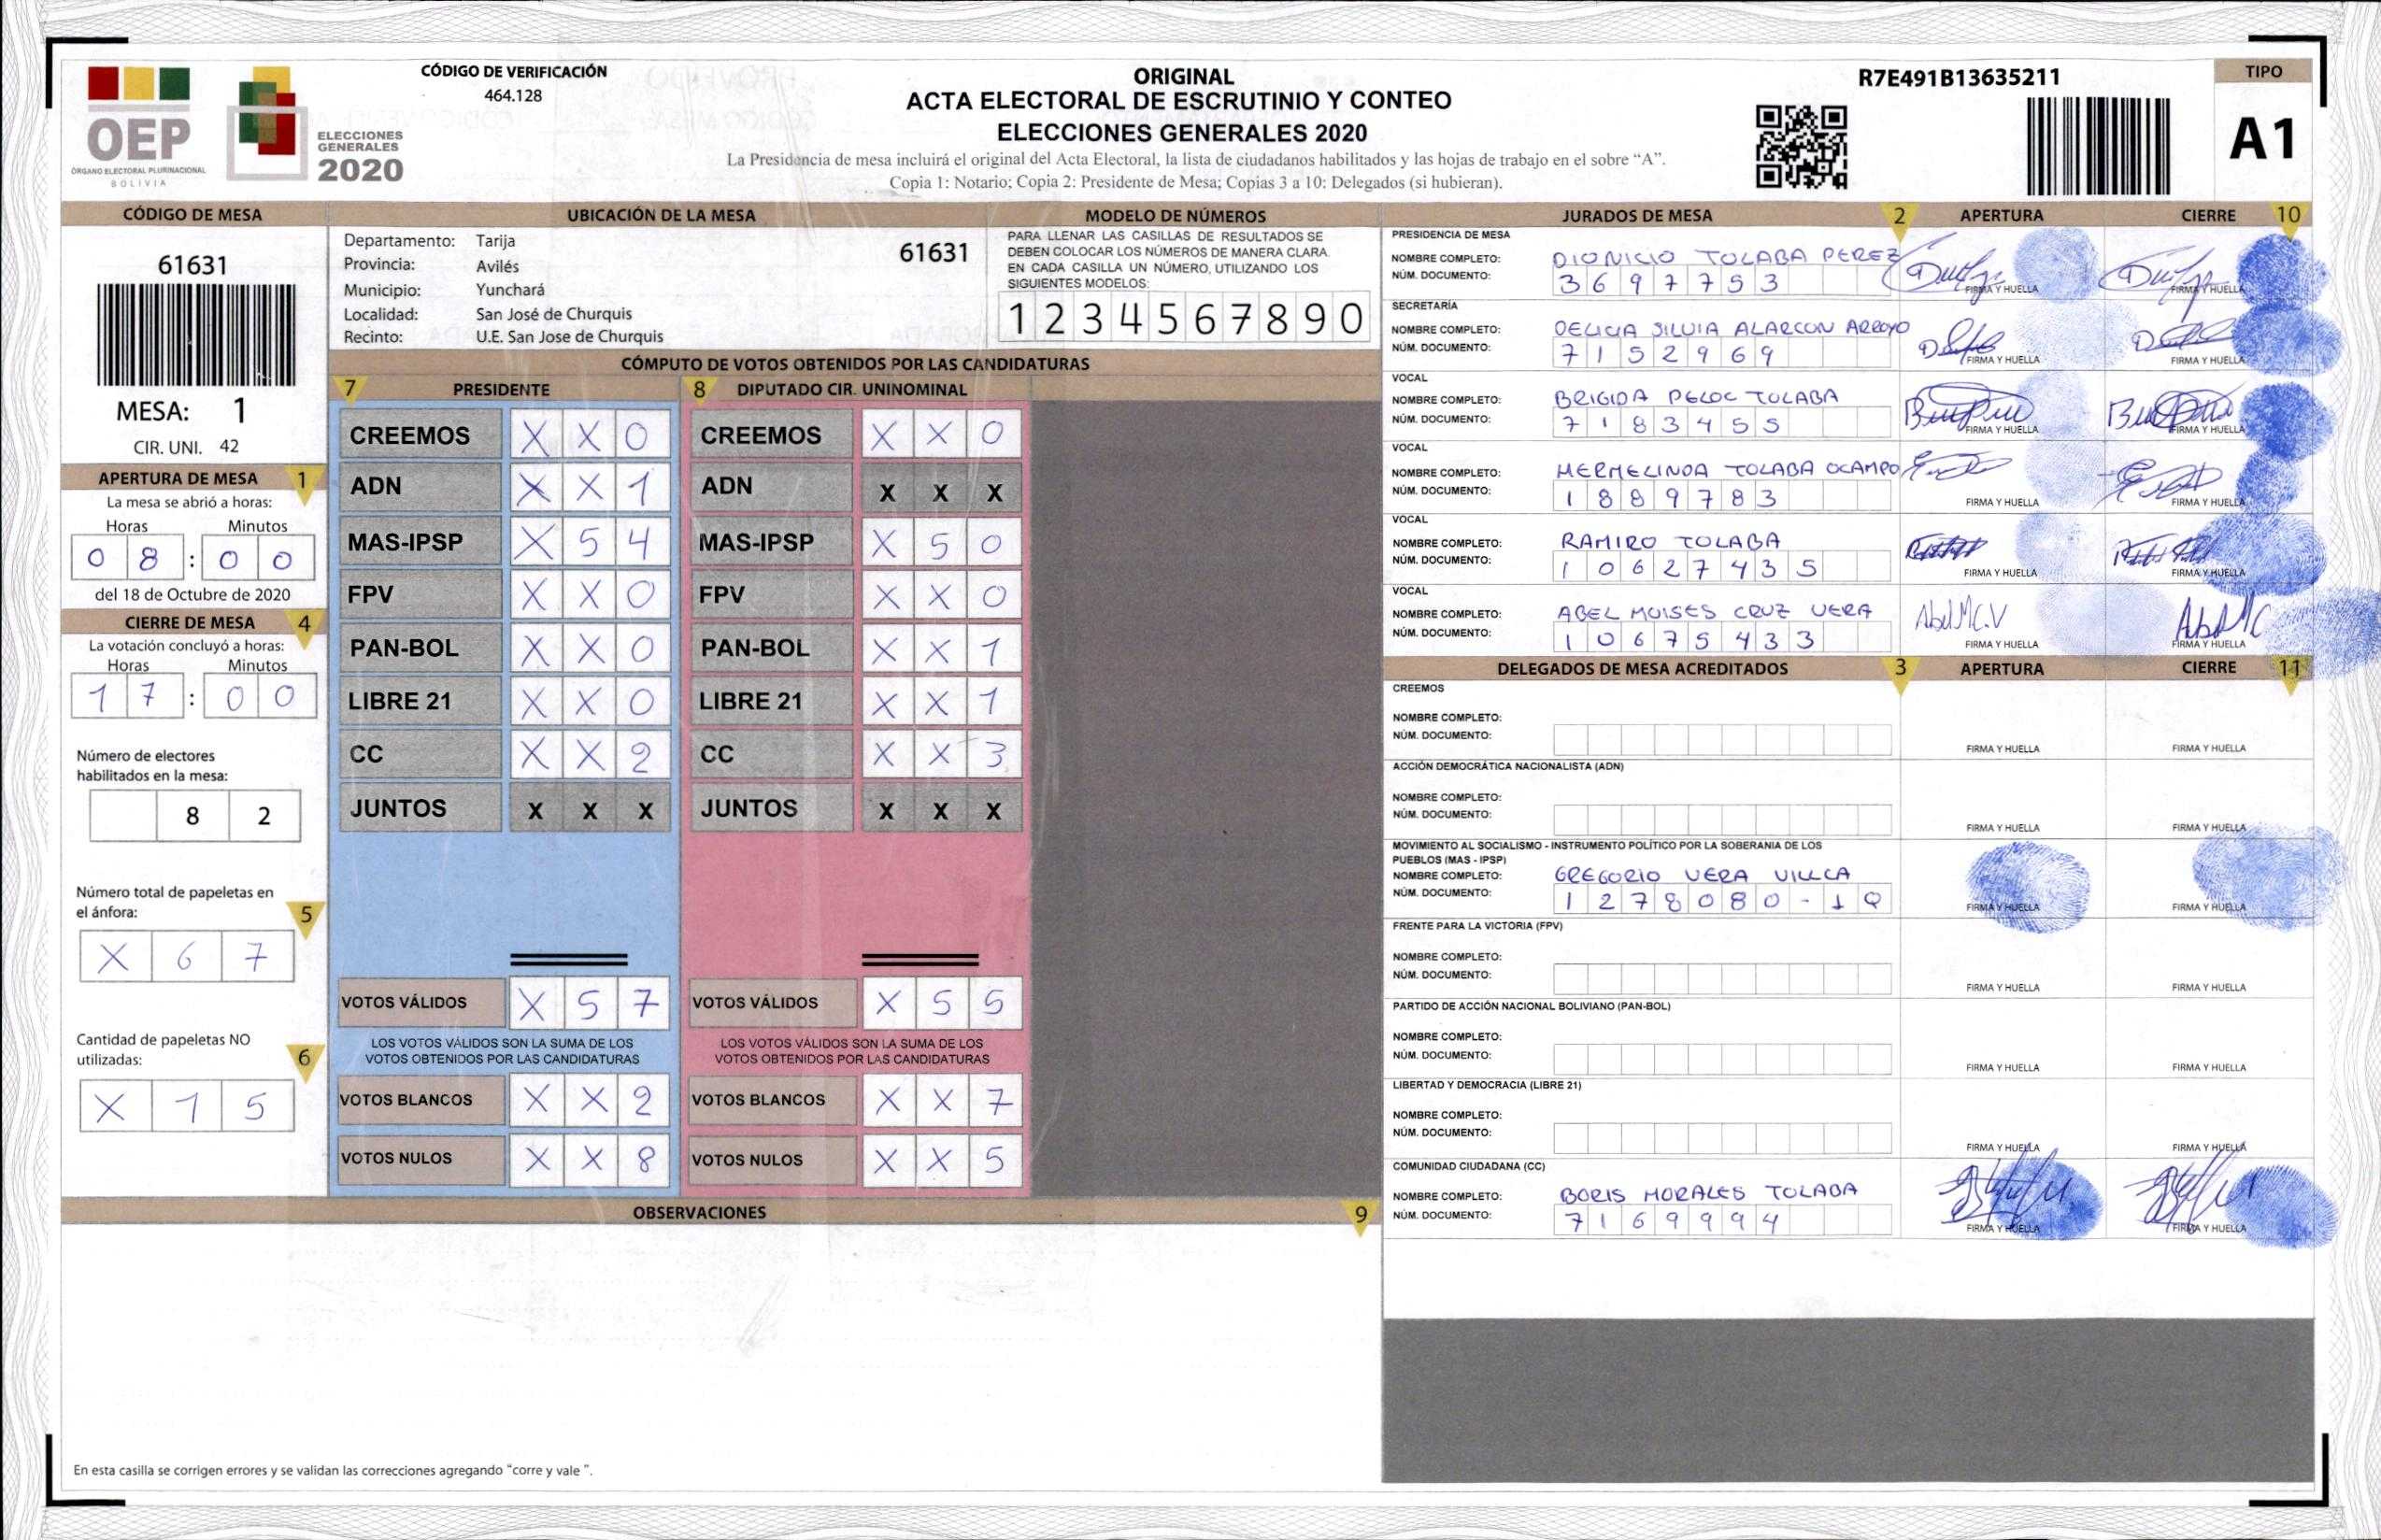 OEP
ÓRGANO ELECTORAL PLURINACIONAL
BOLIVIA
ELECCIONES
GENERALES
2020
CÓDIGO DE VERIFICACIÓN
464.128
ORIGINAL
ACTA ELECTORAL DE ESCRUTINIO Y CONTEO
ELECCIONES GENERALES 2020
La Presidencia de mesa incluirá el original del Acta Electoral, la lista de ciudadanos habilitados y las hojas de trabajo en el sobre “A”.
Copia 1: Notario; Copia 2: Presidente de Mesa; Copias 3 a 10: Delegados (si hubieran).
R7E491B13635211
TIPO
A1
CÓDIGO DE MESA
61631
MESA: 1
CIR. UNI. 42
APERTURA DE MESA 1
La mesa se abrió a horas:
Horas Minutos
0 8 : 0 0
del 18 de Octubre de 2020
CIERRE DE MESA 4
La votación concluyó a horas:
Horas Minutos
1 7 : 0 0
Número de electores
habilitados en la mesa:
8 2
Número total de papeletas en
el ánfora: 5
X 6 7
Cantidad de papeletas NO
utilizadas: 6
X 1 5
UBICACIÓN DE LA MESA
Departamento: Tarija 61631
Provincia: Avilés
Municipio: Yunchará
Localidad: San José de Churquis
Recinto: U.E. San Jose de Churquis
MODELO DE NÚMEROS
PARA LLENAR LAS CASILLAS DE RESULTADOS SE
DEBEN COLOCAR LOS NÚMEROS DE MANERA CLARA.
EN CADA CASILLA UN NÚMERO, UTILIZANDO LOS
SIGUIENTES MODELOS:
1 2 3 4 5 6 7 8 9 0
CÓMPUTO DE VOTOS OBTENIDOS POR LAS CANDIDATURAS
7 PRESIDENTE 8 DIPUTADO CIR. UNINOMINAL
CREEMOS X X 0 CREEMOS X X 0
ADN X X 1 ADN X X X
MAS-IPSP X 5 4 MAS-IPSP X 5 0
FPV X X 0 FPV X X 0
PAN-BOL X X 0 PAN-BOL X X 1
LIBRE 21 X X 0 LIBRE 21 X X 1
CC X X 2 CC X X 3
JUNTOS X X X JUNTOS X X X
VOTOS VÁLIDOS X 5 7 VOTOS VÁLIDOS X 5 5
LOS VOTOS VÁLIDOS SON LA SUMA DE LOS LOS VOTOS VÁLIDOS SON LA SUMA DE LOS
VOTOS OBTENIDOS POR LAS CANDIDATURAS VOTOS OBTENIDOS POR LAS CANDIDATURAS
VOTOS BLANCOS X X 2 VOTOS BLANCOS X X 7
VOTOS NULOS X X 8 VOTOS NULOS X X 5
OBSERVACIONES 9
En esta casilla se corrigen errores y se validan las correcciones agregando “corre y vale ”.
JURADOS DE MESA 2 APERTURA CIERRE 10
PRESIDENCIA DE MESA
NOMBRE COMPLETO: DIONICIO TOLABA PEREZ
NÚM. DOCUMENTO: 3 6 9 7 7 5 3 FIRMA Y HUELLA FIRMA Y HUELLA
SECRETARÍA
NOMBRE COMPLETO: DELICIA SILVIA ALARCON ARROYO
NÚM. DOCUMENTO: 7 1 5 2 9 6 9 FIRMA Y HUELLA FIRMA Y HUELLA
VOCAL
NOMBRE COMPLETO: BRIGIDA PELOC TOLABA
NÚM. DOCUMENTO: 7 1 8 3 4 5 5 FIRMA Y HUELLA FIRMA Y HUELLA
VOCAL
NOMBRE COMPLETO: HERMELINDA TOLABA OCAMPO
NÚM. DOCUMENTO: 1 8 8 9 7 8 3 FIRMA Y HUELLA FIRMA Y HUELLA
VOCAL
NOMBRE COMPLETO: RAMIRO TOLABA
NÚM. DOCUMENTO: 1 0 6 2 7 4 3 5 FIRMA Y HUELLA FIRMA Y HUELLA
VOCAL
NOMBRE COMPLETO: ABEL MOISES CRUZ VERA
NÚM. DOCUMENTO: 1 0 6 7 5 4 3 3 FIRMA Y HUELLA FIRMA Y HUELLA
DELEGADOS DE MESA ACREDITADOS 3 APERTURA CIERRE 11
CREEMOS
NOMBRE COMPLETO:
NÚM. DOCUMENTO: FIRMA Y HUELLA FIRMA Y HUELLA
ACCIÓN DEMOCRÁTICA NACIONALISTA (ADN)
NOMBRE COMPLETO:
NÚM. DOCUMENTO: FIRMA Y HUELLA FIRMA Y HUELLA
MOVIMIENTO AL SOCIALISMO - INSTRUMENTO POLÍTICO POR LA SOBERANIA DE LOS
PUEBLOS (MAS - IPSP)
NOMBRE COMPLETO: GREGORIO VERA VILLCA
NÚM. DOCUMENTO: 1 2 7 8 0 8 0 - 1 Q FIRMA Y HUELLA FIRMA Y HUELLA
FRENTE PARA LA VICTORIA (FPV)
NOMBRE COMPLETO:
NÚM. DOCUMENTO: FIRMA Y HUELLA FIRMA Y HUELLA
PARTIDO DE ACCIÓN NACIONAL BOLIVIANO (PAN-BOL)
NOMBRE COMPLETO:
NÚM. DOCUMENTO: FIRMA Y HUELLA FIRMA Y HUELLA
LIBERTAD Y DEMOCRACIA (LIBRE 21)
NOMBRE COMPLETO:
NÚM. DOCUMENTO: FIRMA Y HUELLA FIRMA Y HUELLA
COMUNIDAD CIUDADANA (CC)
NOMBRE COMPLETO: BORIS MORALES TOLABA
NÚM. DOCUMENTO: 7 1 6 9 9 9 4 FIRMA Y HUELLA FIRMA Y HUELLA